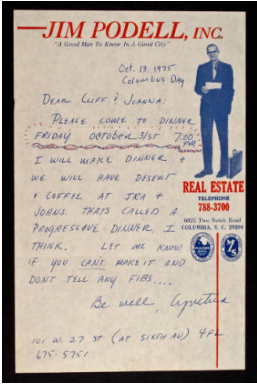 JIM PODELL, INC.
"A Good Man To Know In A Good City"
Oct. 13, 1975
Columbus Day
DEAR CLIFF & JOANNA:
PLEASE COME TO DINNER
FRIDAY OCTOBER 31ST 7:00 PM
I WILL MAKE DINNER +
WE WILL HAVE DESERT
+ COFFEE AT IRA +
JOHNS. THATS CALLED A
PROGRESSIVE DINNER I
THINK. LET ME KNOW
IF YOU CAN'T MAKE IT AND
DON'T TELL ANY FIBS....
Be well, Cynthia
REAL ESTATE
TELEPHONE
788-3700
6825 Two Notch Road
COLUMBIA, S. C. 29204
101 W. 27 ST (AT SIXTH AV) 4FL
675-5751